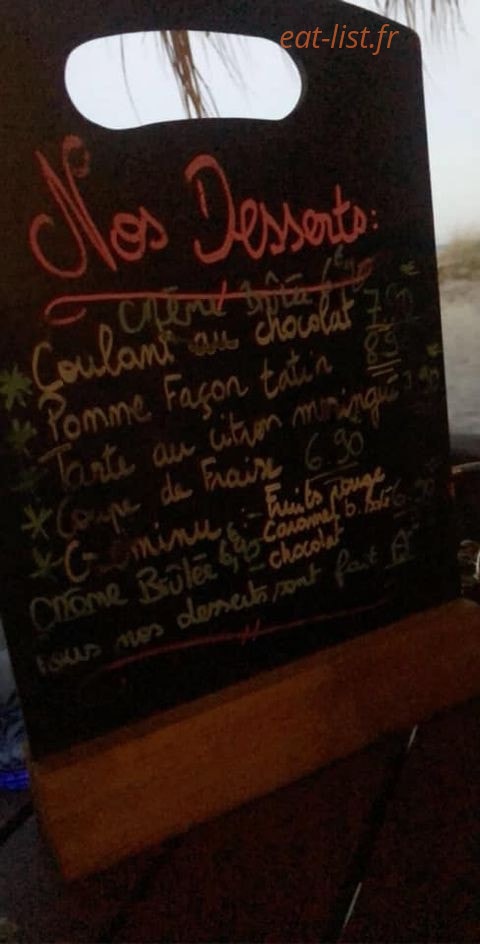 eat-list.fr
Nos Desserts:
Crème Brûlée
* Coulant au chocolat 7
* Pomme Façon tatin
Tarte au citron meringué
* Coupe de Fraise 6.90
* G minu :- Fruits rouge
- Caramel b. salé
- chocolat
Crème Brûlée
Tous nos desserts sont fait